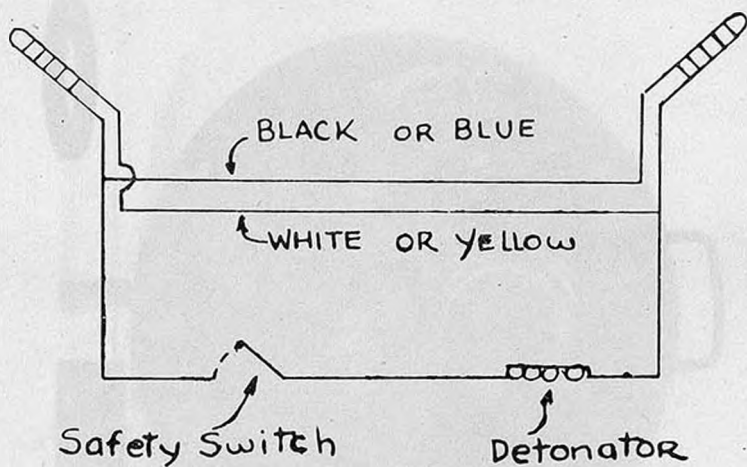 BLACK OR BLUE
WHITE OR YELLOW
Safety Switch
Detonator